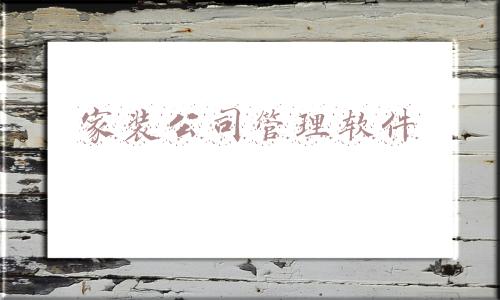 家装公司管理软件